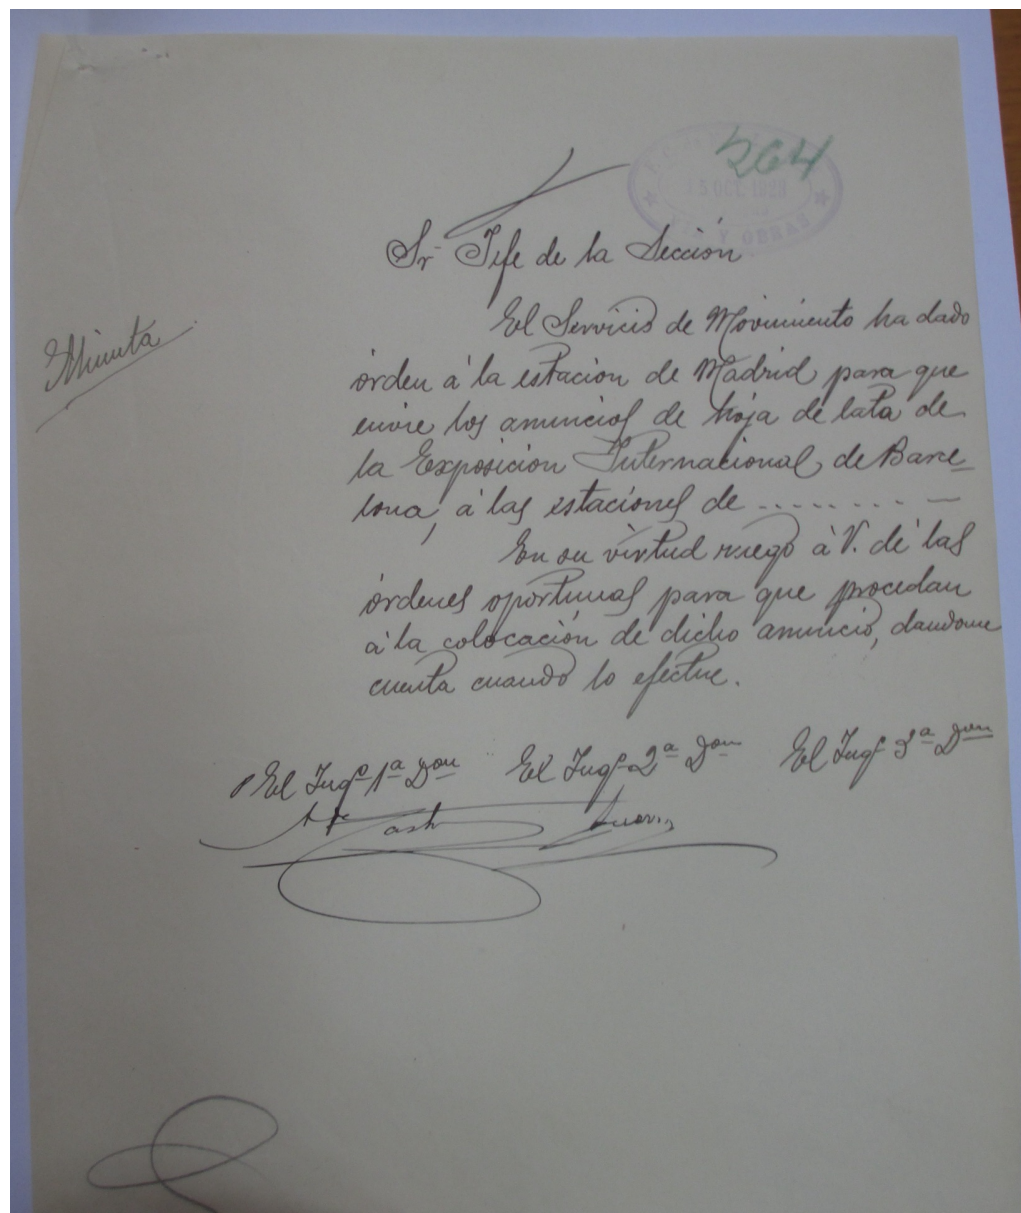 264
5 OCT. 1928
VIA Y OBRAS
Sr Jefe de la Sección
Minuta
El Servicio de Movimiento ha dado
órden á la estación de Madrid para que
envie los anuncios de hoja de lata de
la Exposición Internacional de Barce-
lona, á las estaciones de ........ —
En su virtud ruego á V. dé las
órdenes oportunas para que procedan
á la colocación de dicho anuncio, dandome
cuenta cuando lo efectue.
El Ingº 1ª Don El Ingº 2ª Don El Ingº 3ª Don